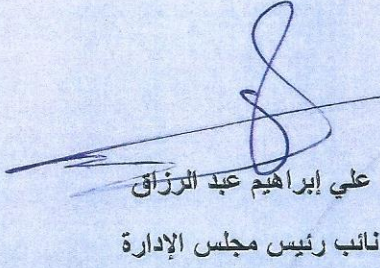 علي إبراهيم عبد الرزاق
نائب رئيس مجلس الإدارة